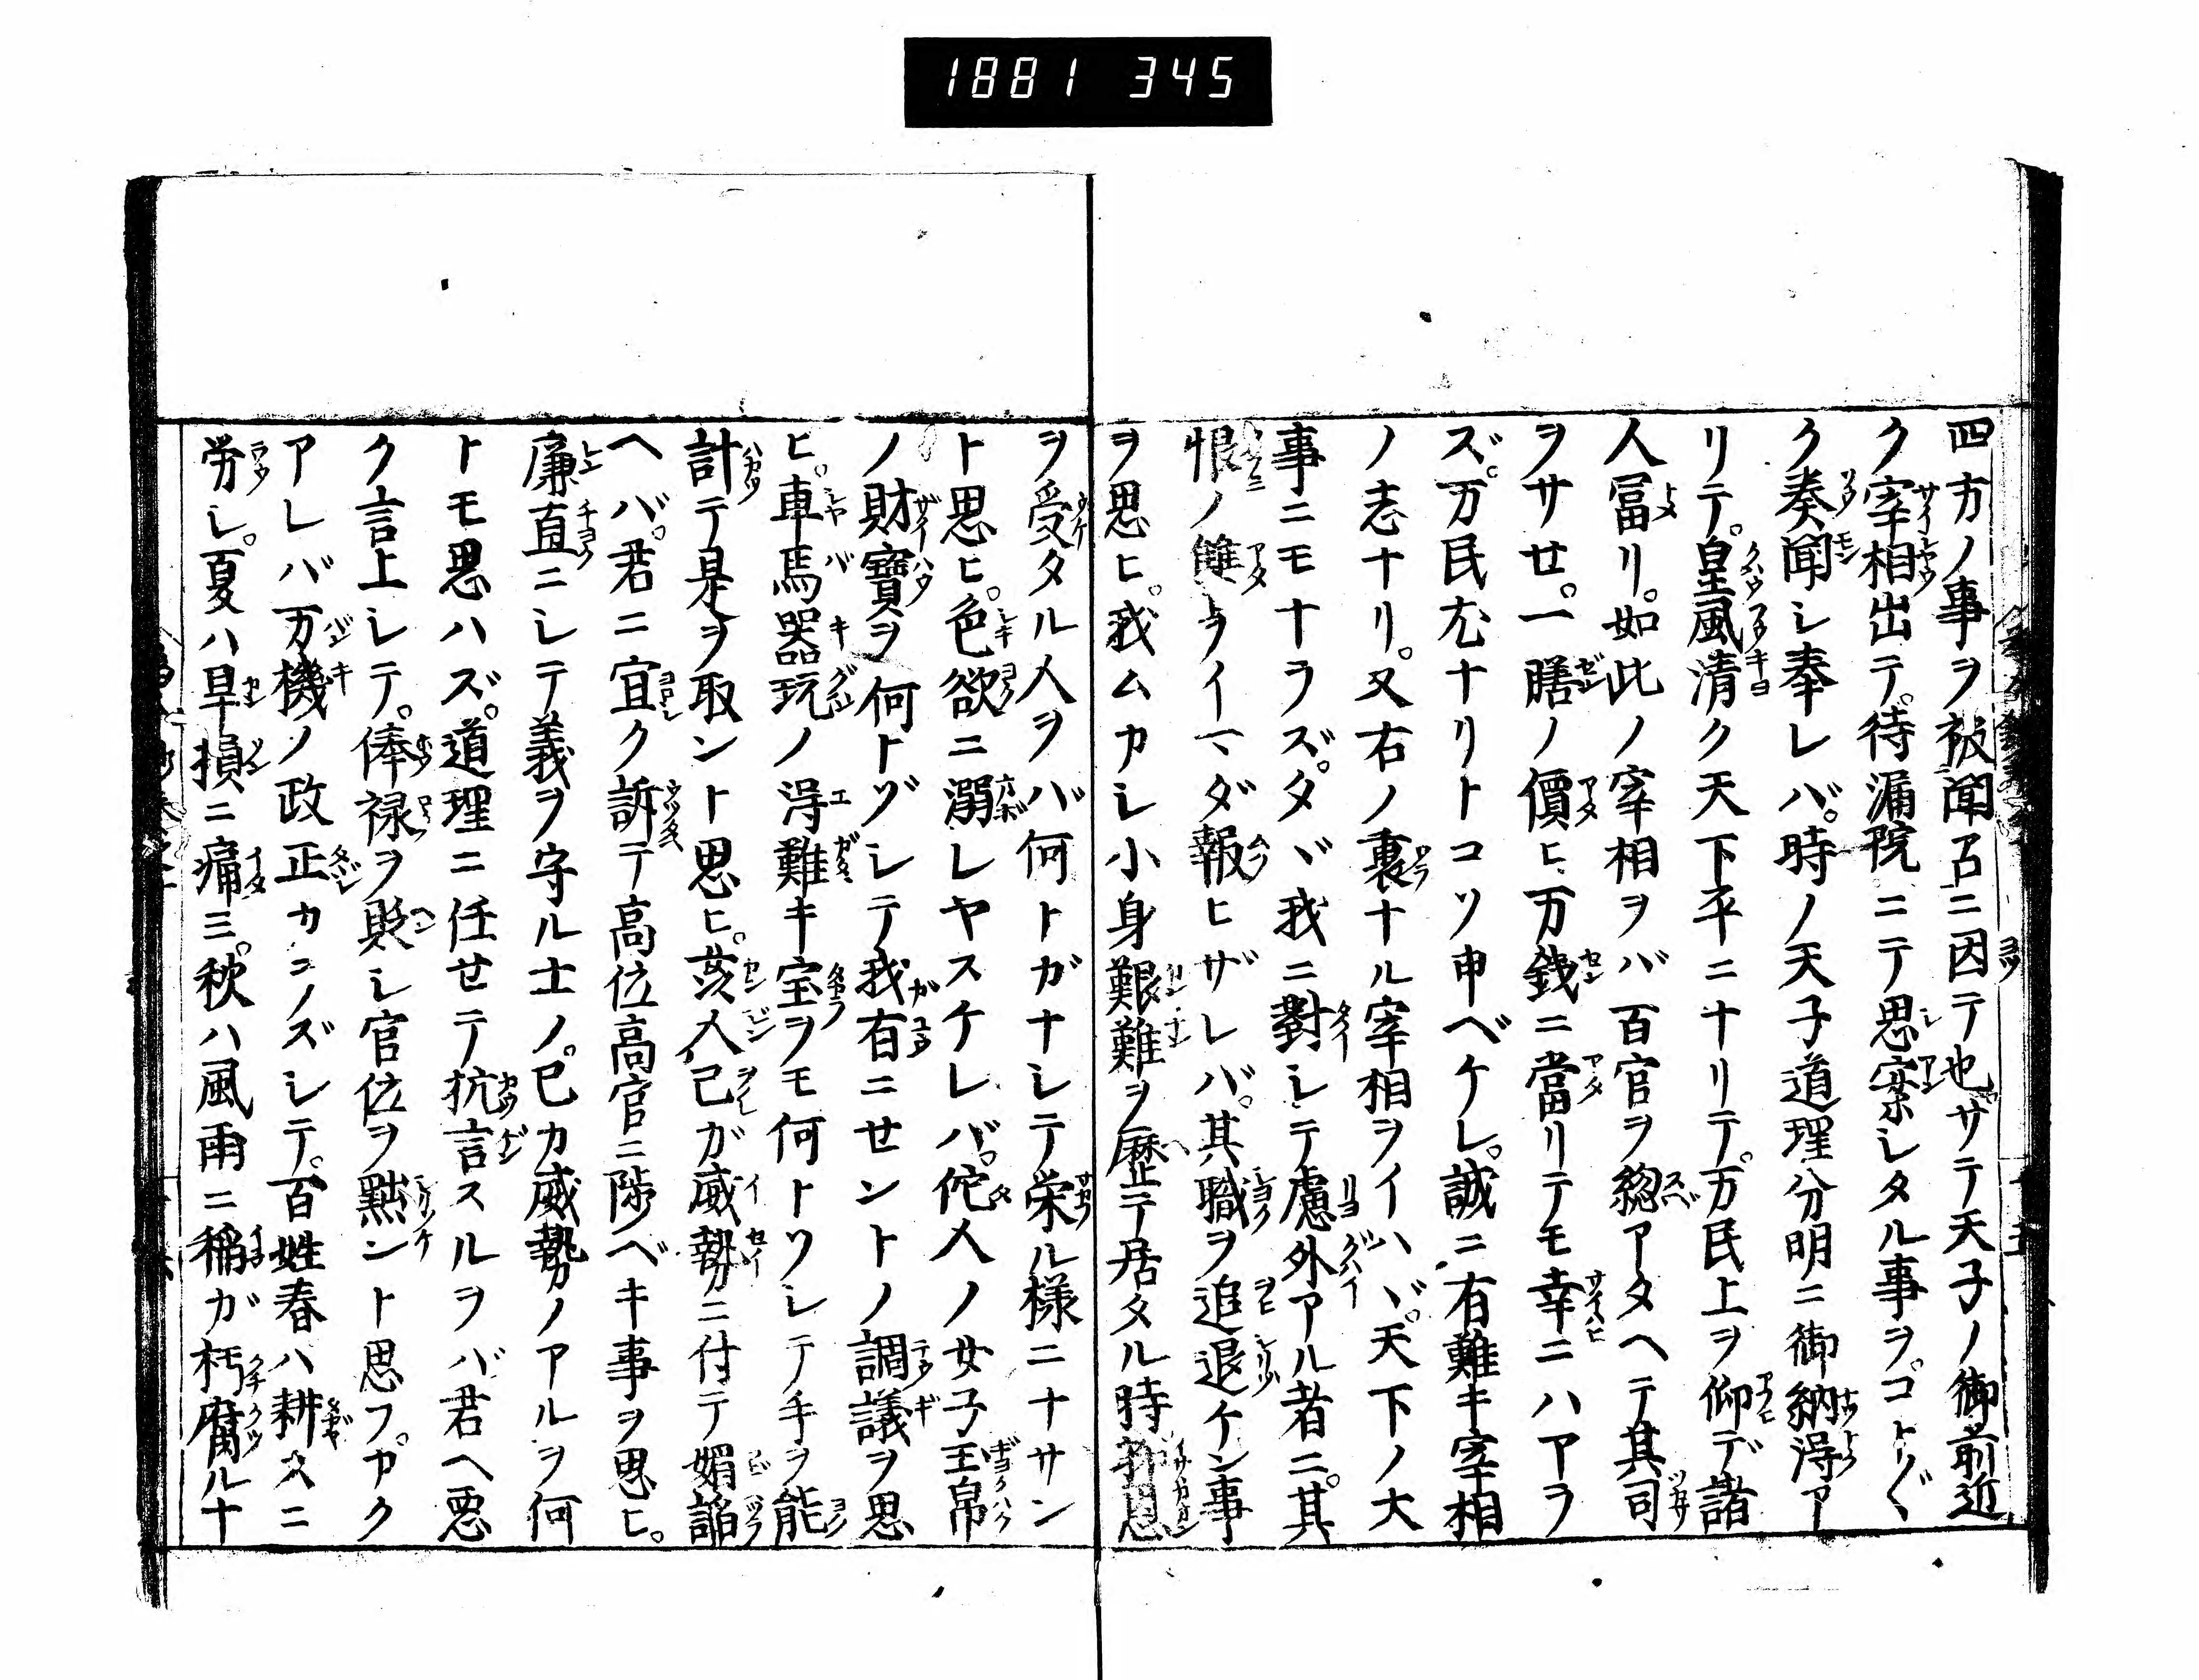 1881 345
四方ノ事ヲ被聞召ニ因テ也サテ天子ノ御前近
ク宰相出テ。待漏院ニテ思案シタル事ヲ。コト〴〵
ク奏聞シ奉レバ。時ノ天子道理分明ニ御納得ア
リテ。皇風清ク天下平ニナリテ。万民上ヲ仰デ諸
人冨リ。如此ノ宰相ヲバ百官ヲ緫アタヘテ其司
ヲサセ。一膳ノ價ヒ万銭ニ當リテモ幸ニハアラ
ズ。万民尤ナリトコソ申ベケレ。誠ニ有難キ宰相
ノ志ナリ。又右ノ裏ナル宰相ヲイハヾ。天下ノ大
事ニモナラズ。タヾ我ニ對シテ慮外アル者ニ。其
恨ノ雔ヲイマダ報ヒザレバ。其職ヲ追退ケン事
ヲ思ヒ。我ムカシ小身艱難ヲ歴テ居タル時
ヲ受タル人ヲバ何トガナシテ栄ル様ニナサン
ト思ヒ。色欲ニ溺レヤスケレバ。佗人ノ女子玉帛
ノ財寶ヲ何トゾシテ我有ニセントノ調議ヲ思
ヒ。車馬器玩ノ淂難キ宝ヲモ何トソシテ手ヲ能
計テ是ヲ取ント思ヒ。亥人己ガ威勢ニ付テ媚諂
ヘバ。君ニ宜ク訴テ高位高官ニ陟ベキ事ヲ思ヒ。
廉直ニシテ義ヲ守ル士ノ。己カ威勢ノアルヲ何
トモ思ハズ。道理ニ任せテ抗言スルヲバ君ヘ悪
ク言上シテ。俸禄ヲ貶シ官位ヲ黜ント思フ。カク
アレバ万機ノ政正カラズシテ。百姓春ハ耕スニ
労シ。夏ハ旱損ニ痛ミ。秋ハ風雨ニ稲ガ朽腐ルナ